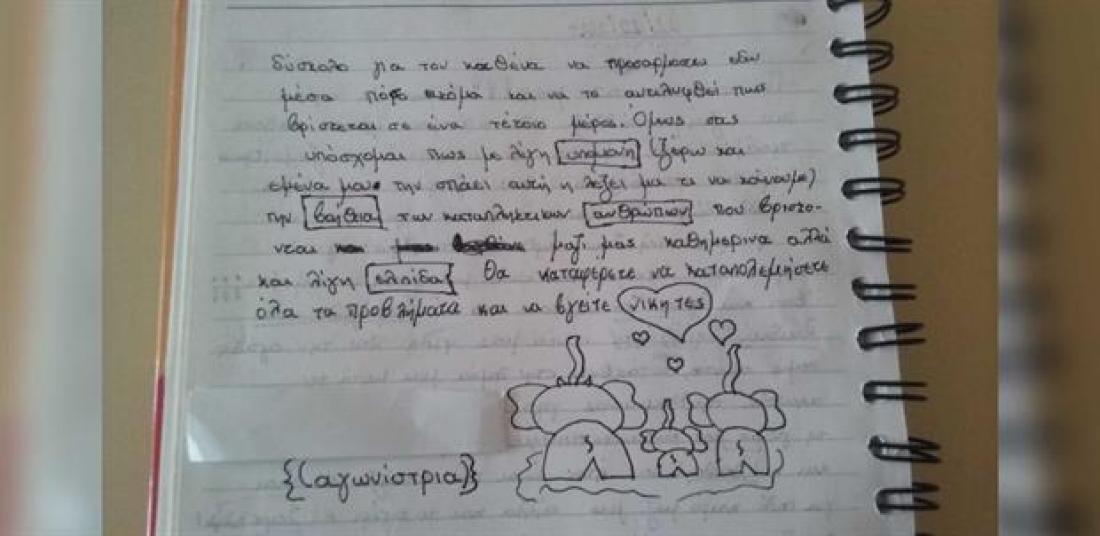 δύσκολο για τον καθένα να προσαρμοστει εδω
μέσα πόσο ακόμα και να το αντιληφθεί πως
βρίσκεται σε ένα τέτοιο μέρος. Όμως σας
υπόσχομαι πως με λίγη υπομονή (ξέρω και
εμένα μου την σπάει αυτή η λέξει μα τι να κάνουμε)
την βοήθεια των καταπληκτικων ανθρώπων που βρισκο-
νται μαζί μας καθημερινα αλλά
και λίγη ελπίδα θα καταφέρετε να καταπολεμήσετε
όλα τα προβλήματα και να βγείτε νικητες
{(αγωνίστρια)}